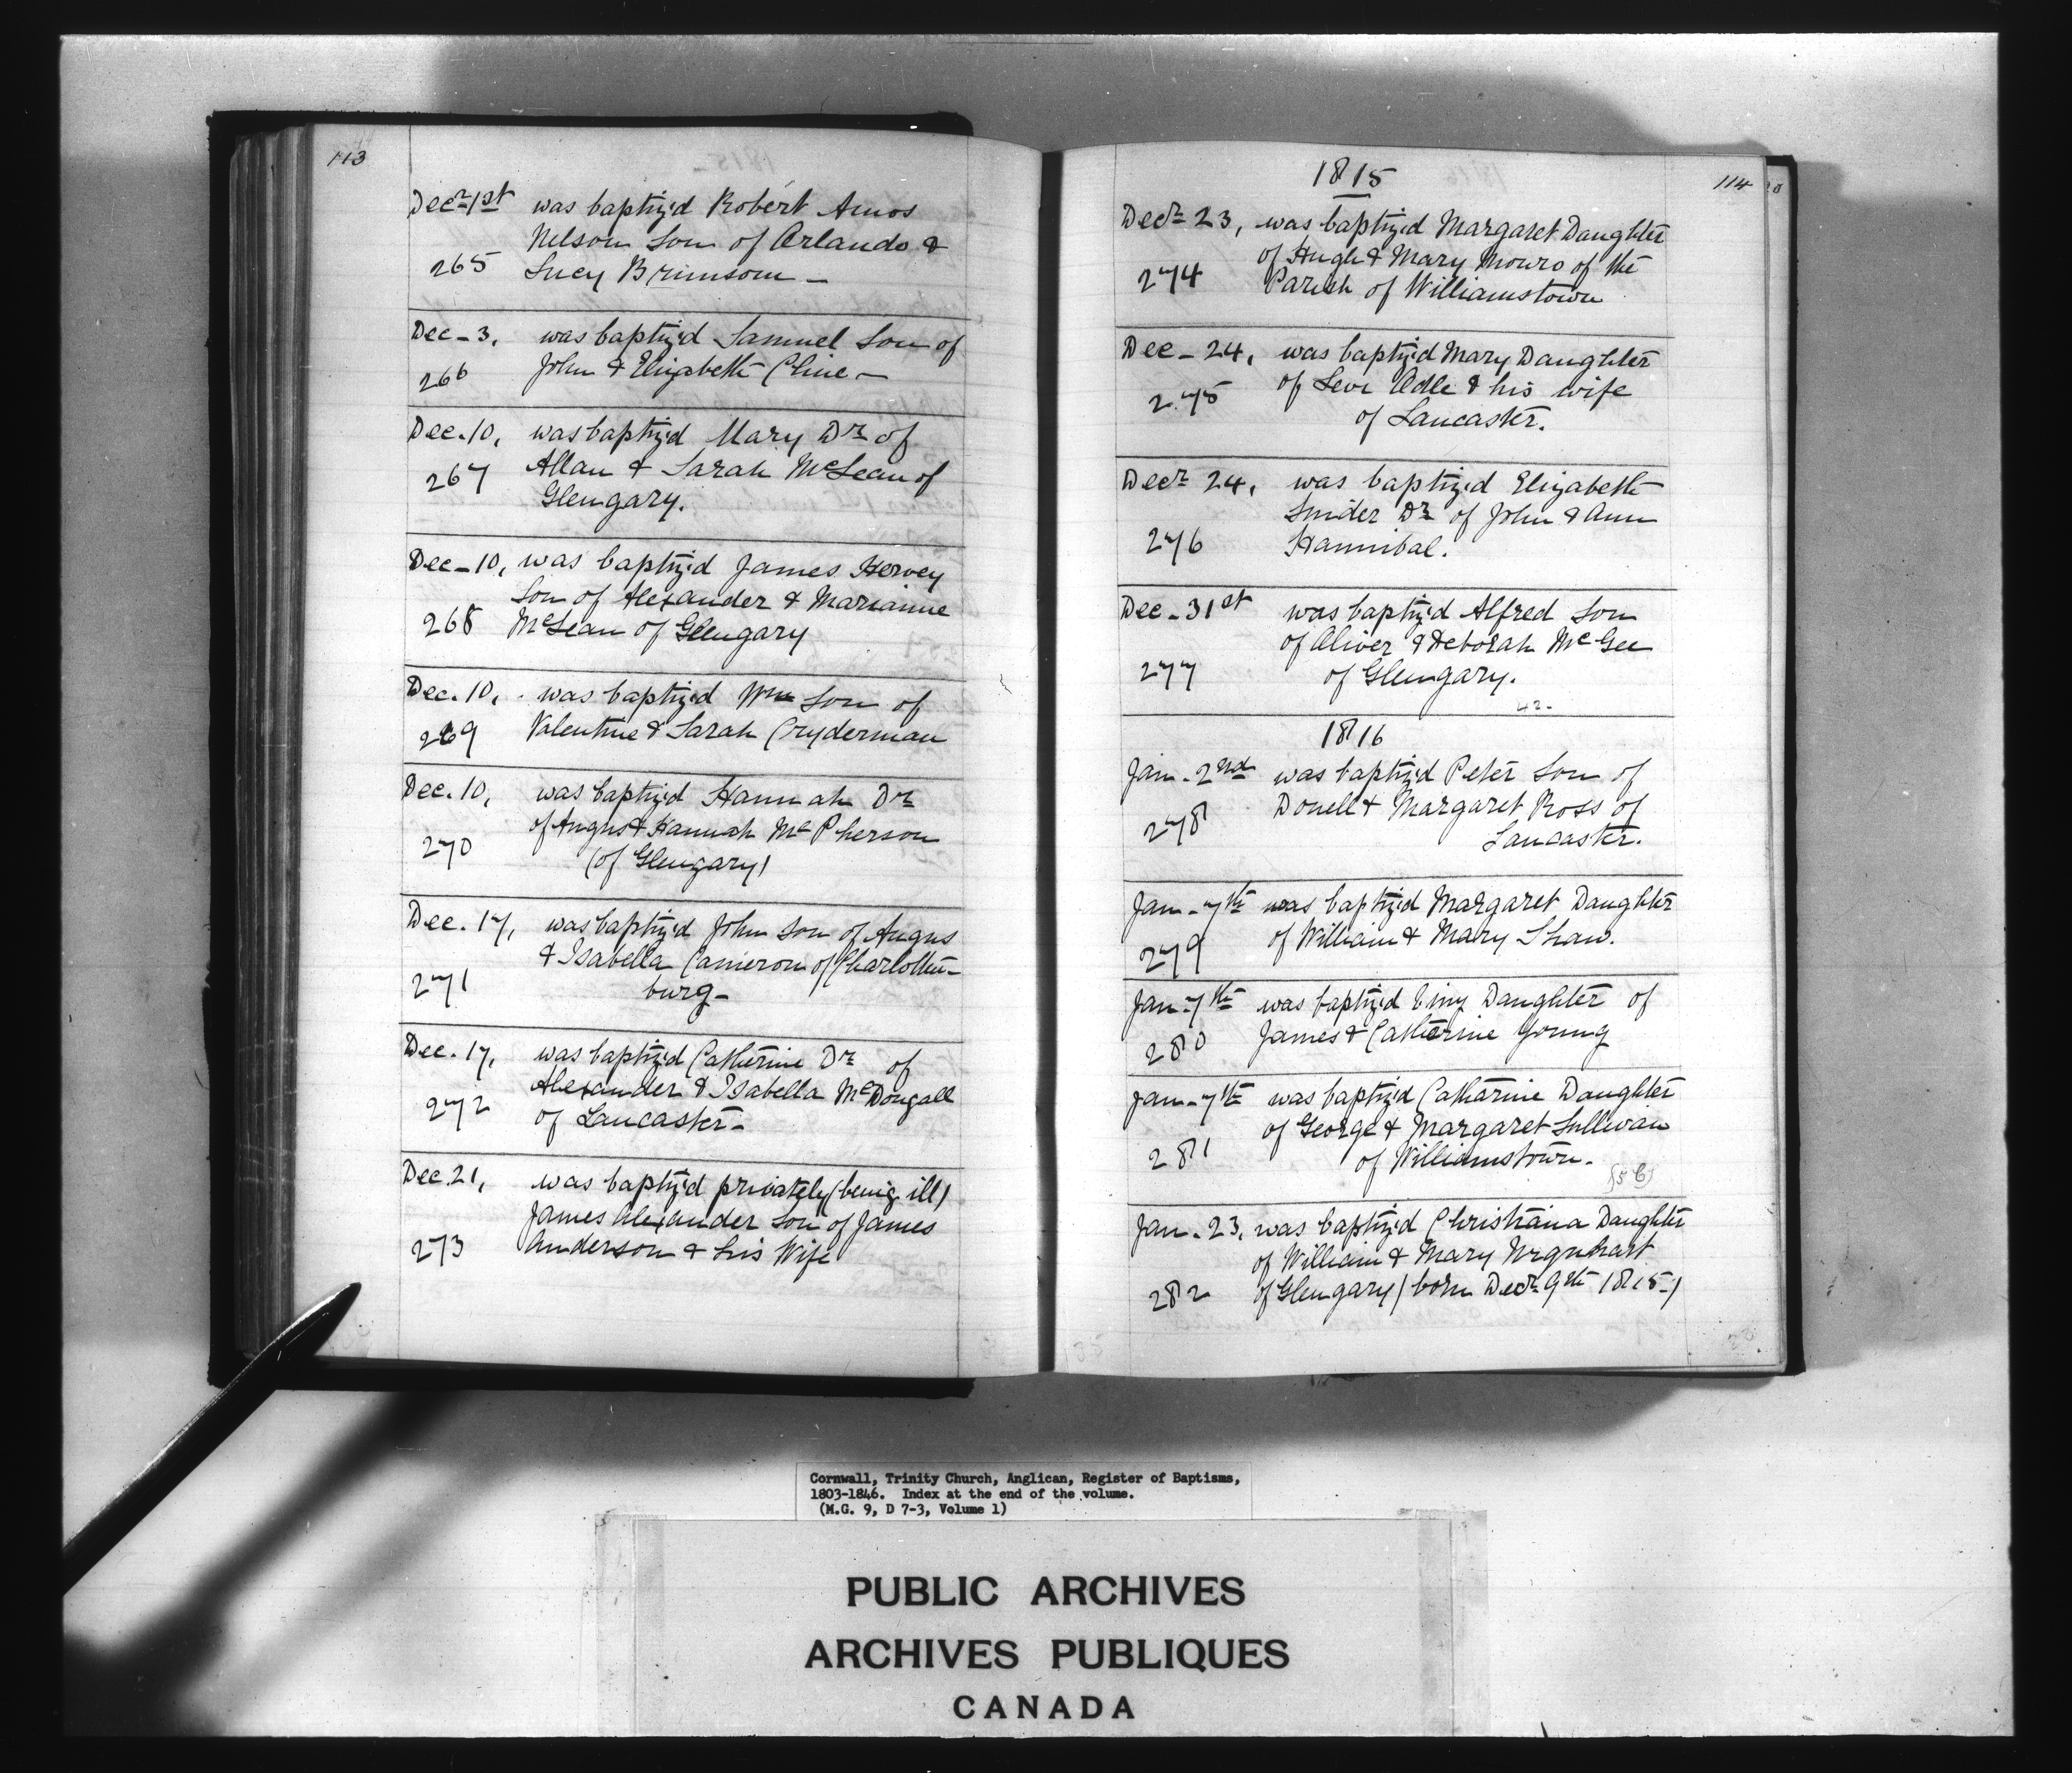 113
Decr 1st was baptiz'd Robert Amos
Nelson Son of Orlando &
265 Lucy Brimsom —
Dec - 3, was baptiz'd Samuel Son of
266 John & Elizabeth Cline —
Dec. 10, was baptiz'd Mary Dr of
267 Allan & Sarah McLean of
Glengary.
Dec - 10, was baptiz'd James Hervey
Son of Alexander & Marianne
268 McLean of Glengary
Dec. 10, was baptiz'd Wm Son of
269 Valentine & Sarah Cryderman
Dec. 10, was baptiz'd Hannah Dr
of Angus & Hannah McPherson
270 (of Glengary)
Dec. 17, was baptiz'd John Son of Angus
& Isabella Cameron of Charlotten-
271 burg -
Dec. 17, was baptiz'd Catherine Dr of
272 Alexander & Isabella McDougall
of Lancaster -
Dec. 21, was baptiz'd privately (being ill)
James Alexander Son of James
273 Anderson & his Wife
114
1815
Decr 23, was baptiz'd Margaret Daughter
of Hugh & Mary Monro of the
274 Parish of Williamstown
Dec - 24, was baptiz'd Mary Daughter
275 of Levi Adle & his wife
of Lancaster.
Decr 24, was baptiz'd Elizabeth
Snider Dr of John & Ann
276 Hannibal.
Dec - 31st was baptiz'd Alfred Son
of Oliver & Deborah McGee
277 of Glengary.
42-
1816
Jan - 2nd was baptiz'd Peter Son of
278 Donell & Margaret Ross of
Lancaster.
Jan - 7th was baptiz'd Margaret Daughter
279 of William & Mary Shaw.
Jan - 7th was baptiz'd Emy Daughter of
280 James & Catherine Young
Jan - 7th was baptiz'd Catharine Daughter
of George & Margaret Sullivan
281 of Williamstown.
Jan - 23, was baptiz'd Christiana Daughter
of William & Mary Urquhart
282 of Glengary (born Decr 9th 1815-)
Cornwall, Trinity Church, Anglican, Register of Baptisms,
1803-1846. Index at the end of the volume.
(M.G. 9, D 7-3, Volume 1)
PUBLIC ARCHIVES
ARCHIVES PUBLIQUES
CANADA